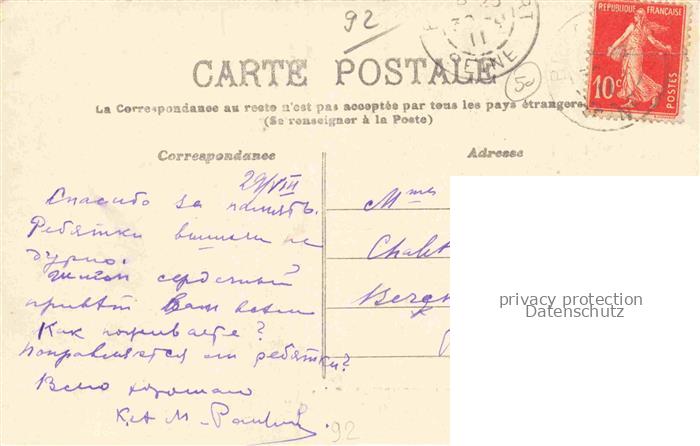 92
CARTE POSTALE
La Correspondance au recto n'est pas acceptée par tous les pays étrangers
(Se renseigner à la Poste)
REPUBLIQUE FRANÇAISE
10c
POSTES
SEINE
11
50
Correspondance
29/VIII
Спасибо за память.
Ребятки вышли не
дурно.
сердечный
привет Вам всем
Как поживаете?
Поправляются ли ребятки?
Всего хорошего
К. и М.
92
Adresse
Mmes
Chalet
privacy protection
Datenschutz